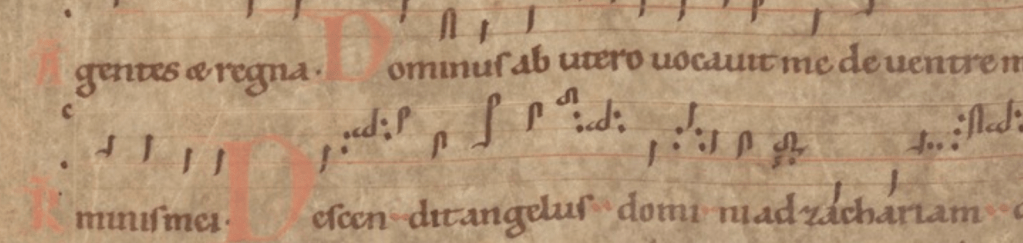 A gentes & regna. Dominus ab utero uocauit me de uentre m
R minus mei. Descen dit angelus domi ni ad zachariam